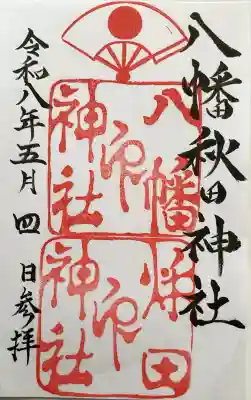 八幡秋田神社
八幡
神社
印
秋田
神社
印
令和八年五月四日参拝